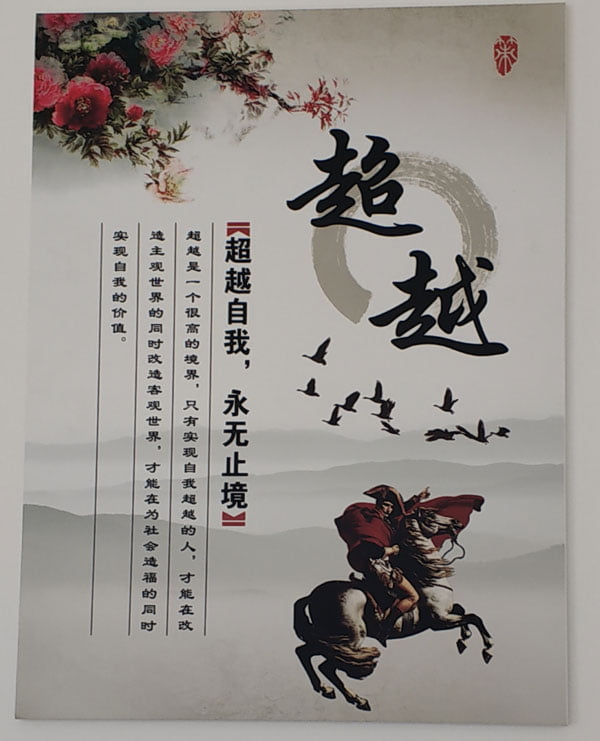 超越
【超越自我，永无止境】
超越是一个很高的境界，只有实现自我超越的人，才能在改
造主观世界的同时改造客观世界，才能在为社会造福的同时
实现自我的价值。